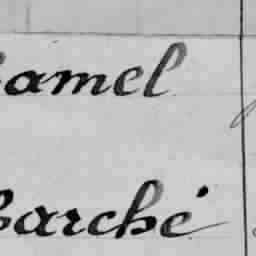 amel
arché